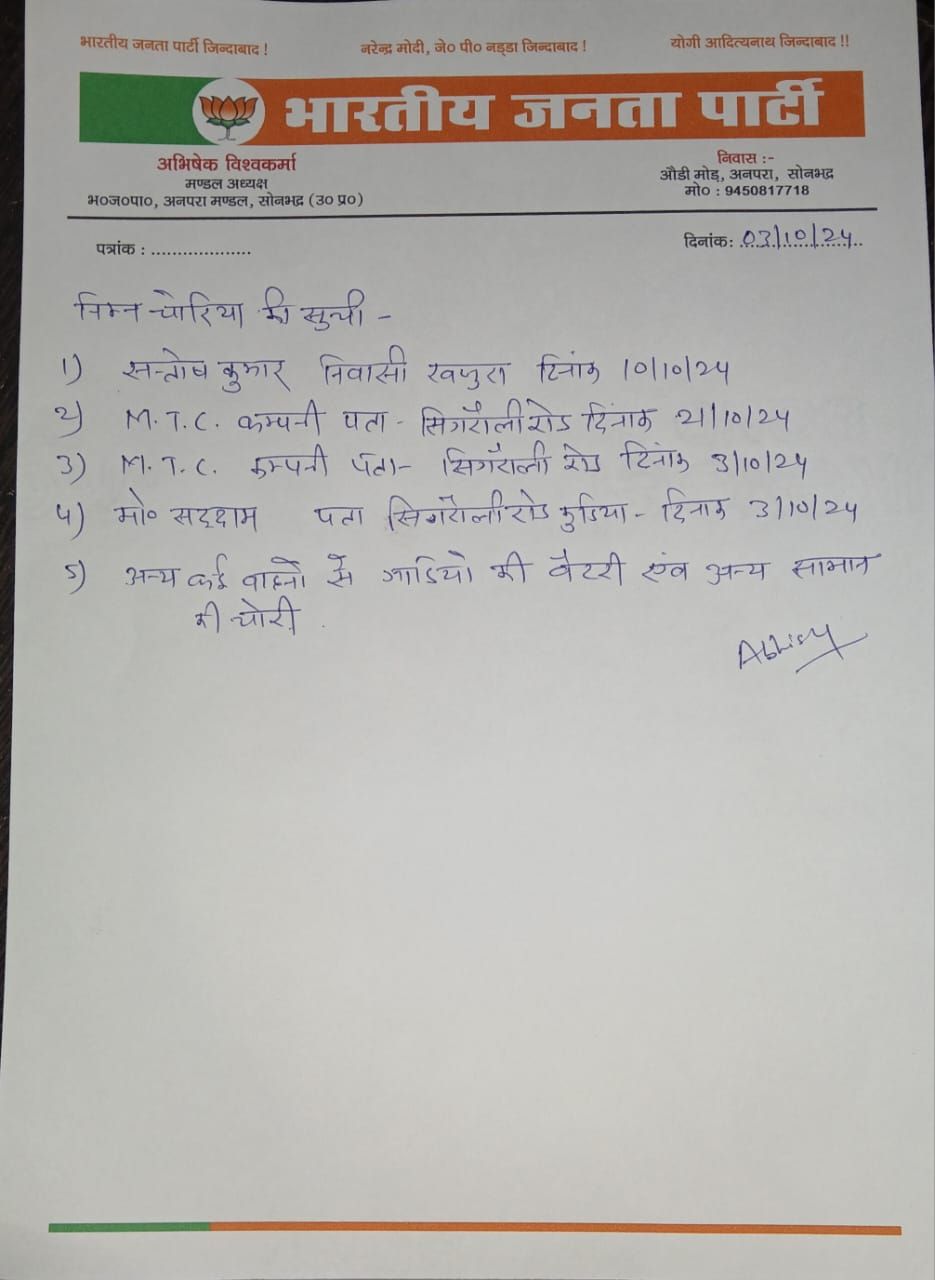 भारतीय जनता पार्टी जिन्दाबाद ! नरेन्द्र मोदी, जे० पी० नड्डा जिन्दाबाद ! योगी आदित्यनाथ जिन्दाबाद !!
भारतीय जनता पार्टी
अभिषेक विश्वकर्मा
मण्डल अध्यक्ष
भ०ज०पा०, अनपरा मण्डल, सोनभद्र (उ० प्र०)
निवास :-
औडी मोड़, अनपरा, सोनभद्र
मो० : 9450817718
पत्रांक : ...................
दिनांक: 03/10/24
निम्न चोरिया की सुची -
1) सन्तोष कुमार निवासी खजुरा दिनांक 10/10/24
2) M.T.C. कम्पनी पता - सिगरौली रोड दिनांक 21/10/24
3) M.T.C. कम्पनी पता - सिगरौली रोड दिनांक 3/10/24
4) मो० सद्दाम पता सिगरौली रोड कुडिया - दिनांक 3/10/24
5) अन्य कई वाहनो से गाडियो की बैटरी एंव अन्य सामान
की चोरी .